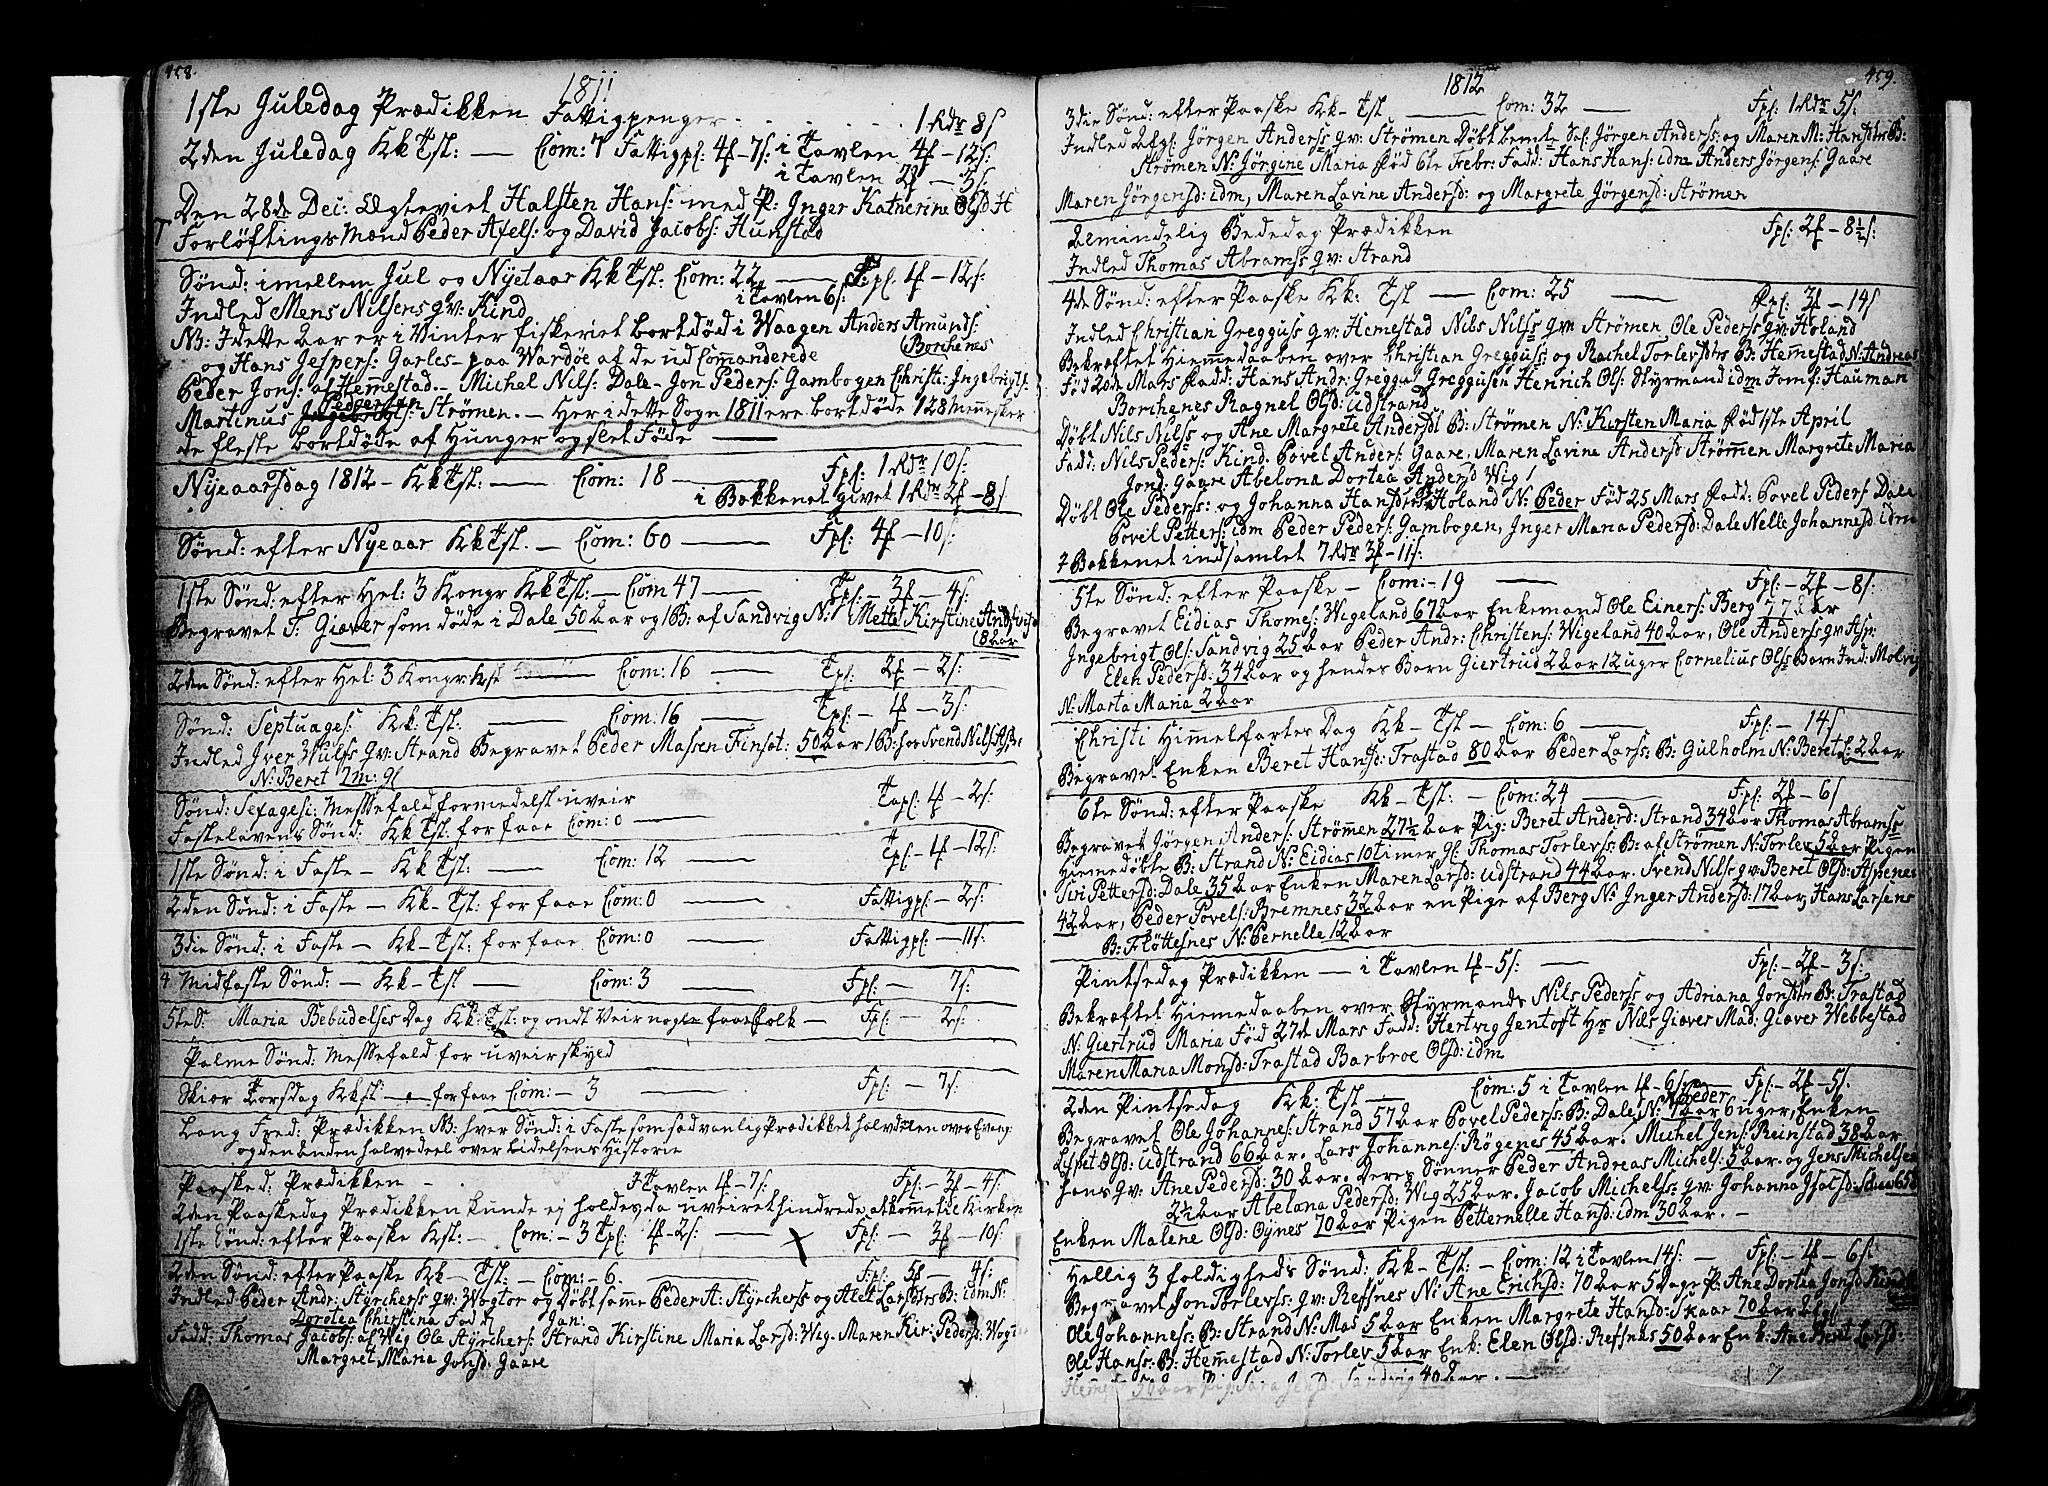 458.
1811
1ste Juledag Prædikken Fattigpenger 1 Rdr 8ſ
2den Juledag Kk Tst: — Com: 7 Fattigpſ: 4f – 7ſ: i Tavlen 4f – 12ſ:
i Tavlen 2f – 3ſ:
Den 28de Dec: Ægteviet Halsten Hans: med P: Inger Katherine Olsd H
Forløftings Mænd Peder Axels: og David Jacobs: Hunstad
Sønd: imellem Jul og Nyetaar Kk Tst: Com: 22 — F:pſ: 4f – 12ſ:
Indled Mons Nilsens qv: Kind i Tavlen 6ſ:
NB: I dette Aar er i Vinter fiskeriet bortdød i Waagen Anders Amunds:
og Hans Jespers: Garles – paa Wardøe af de ud Comanderede (Borchenes
Peder Jons: af Hemestad. – Michel Nils: Dale – Jon Peders: Gambogen Christi: Ingebrigts:
Martinus Pedersen Strømen. – Her i dette Sogn 1811 ere bortdøde 128 Mennesker
de fleste bortdøde af Hunger og slet Føde —
Nyeaarsdag 1812 – Kk Tst: — Com: 18 — Fpſ: 1 Rdr 10ſ:
i Bækkenet givet 1 Rdr 2f – 8ſ
Sønd: efter Nyeaar Kk Tst. – Com: 60 — Fpſ: 4f – 10ſ:
1ste Sønd: efter Hel: 3 Kongr Kk Tst: – Com 47 — Fpſ – 3f – 4ſ:
Begravet T: Giæver som døde i Dale 50 Aar og 1 B: af Sandvig N: Mette Kirstine Andrisd
(8 Aar
2den Sønd: efter Hel: 3 Kongr Kst — Com: 16 — Fpſ: 2f – 2ſ:
Sønd: Septuages: Kk: Tst: — Com: 16 — Fpſ – 4f – 3ſ:
Indled Iver Hulss qv: Strand Begravet Peder Massen Finsæt: 50 Aar 1 B: for Svend Nils Aspe
N: Beret 2 m: gl
Sønd: Sexages: Messefald formedelst uveir Fapſ: 4f – 2ſ:
Fastelavens Sønd: Kk Tst: for faae Com: 0 —
1ste Sønd: i Faste – Kk Tst: — Com: 12 — Fpſ – 4f – 12ſ:
2den Sønd: i Faste – Kk – Tst: for faae Com: 0 — Fattigpſ: – 2ſ:
3die Sønd: i Faste – Kk – Tst: for faae Com: 0 — Fattigpſ: – 11ſ:
4 Midfaste Sønd: – Kk – Tst — Com: 3 — Fpſ: – 7ſ:
5te S: Maria Bebudelses Dag Kk: Tst: og ondt Veir nogle faae Folk – Fpſ: – 2ſ:
Palme Sønd: Messefald for uveirskyld
Skiær Torsdag Kk st – for faae Com: – 3 — Fpſ: – 7ſ:
Lang Fred: Prædikken NB: hver Sønd: i Faste som sædvanlig Prædikket halvdelen over Evang:
og den Anden halvedeel over Lidelsens Historie
Paasked: Prædikken – I Tavlen 4f – 7ſ: Fpſ: – 3f – 4ſ:
2den Paaskedag Prædikken kunde ej holdes, da uveiret hindrede, at komme til Kirken
1ste Sønd: efter Paaske Kst: – Com: – 3 Tpſ: 4f – 2ſ: — Fpſ: – 3f – 10ſ:
2den Sønd: efter Paaske Kk – Tst: – Com: – 6. — Fpſ: 5f – 4ſ:
Indled Peder Andr: Styrchers qv: Wogtor og Døbt samme Peder A: Styrcherss og Alet Larsdtrs B: idm N:
Dorotea Christina Fødd Jan:
Fadd: Thomas Jacobs: af Wig Ole Styrchers: Strand Kirstine Maria Larsd: Wig – Maren Kir: Pedersd: Wogt
Margret Maria Jonsd: Gaare
459.
1812
3die Sønd: efter Paaske Kk – Tst — Com: 32 — Fpſ: 1 Rdr 5ſ:
Indled Afgl: Jørgen Anderss qv: Strømen Døbt bemte Sal: Jørgen Anderss: og Maren M: Hansdtrs B:
Strømen N: Jørgine Maria Fød 6te Febr: Fadd: Hans Hans: idm Anders Jørgens: Gaare
Maren Jørgensd: idm, Maren Lavine Andersd: og Margrete Jørgensd: Strømen
Almindelig Bededag Prædikken Fpſ: 2f – 8½ſ:
Indled Thomas Abramss qv: Strand
4de Sønd: efter Paaske Kk: Tst — Com: 25 — Fpſ: 3f – 14ſ:
Indled Christian Gregguss qv: Hemestad Nils Nilss qv: Strømen Ole Peders qv: Høland
Bekræftet Hiemmedaaben over Christian Greggus: og Rachel Torlevsdtrs B: Hemmestad N: Andreas
Fød 20de Mars Fadd: Hans Andr: Greggus Greggusen Henrich Ols: Styrmand idm Jomf: Hauman
Borchenes Ragnel Olsd: udstrand
Døbt Nils Nilss og Ane Margrete Andersdt B: Strømen N: Kirsten Maria Fød 1ste April
Fadd: Nils Peders: Kind. Povel Anders: Gaare, Maren Lavine Andersd Strømmen Margrete Maria
Jonsd: Gaare Abelona Dortea Andersd Wig
Døbt Ole Peders: og Johanna Hansdtrs Høland N: Peder Fød 25 Mars Fadd: Povel Peders Dale
Povel Petters: idm Peder Peders: Gambogen, Inger Maria Pedersd: Dale Nelle Johannesd idm
I Bækkenet indsamlet 7 Rdr 3f – 11ſ:
5te Sønd: efter Paaske – Com: – 19 — Fpſ: – 2f – 8ſ:
Begravet Eidias Thomes: Wigeland 67 Aar Enkemand Ole Einers: Berg 77 Aar
Ingebrigt Ols: Sandvig 25 Aar Peder Andr: Christens: Wigeland 40 Aar, Ole Anderss qv Asp:
Elen Pedersd: 34 Aar og hendes Barn Giertrud 2 Aar 12 uger Cornelius Olss Barn Ind: Molvig
N: Marta Maria 2 Aar
Christi Himmelfartes Dag Kk – Tst – Com: 6 — Fpſ: – 14ſ
Begravet Enken Beret Hansd: Trastad 80 Aar Peder Larss: B: Gulholm N: Beret L: 2 Aar
6te Sønd: efter Paaske Kk – Tst: – Com: 24 — Fpſ: 2f – 6ſ
Begravet Jørgen Anders: Strømmen 27½ Aar Pig: Beret Andersd: Strand 34 Aar Thomas Abramss
Hiemedøbte B: Strand N: Eidias 10 timer gl: Thomas Torlevs: B: af Strømen N: Torlev 5 Aar Pigen
Siri Pettersd: Dale 35 Aar Enken Maren Larsd: udstrand 44 Aar. Svend Nils qv: Beret Olsd: Aspenes
42 Aar, Peder Povels: Bremnes 32 Aar en Pige af Berg N: Inger Andersd: 17 Aar, Hans Larsens
B: Fløttesnes N: Pernelle 12 Aar
Pintsedag Prædikken — i Tavlen 4f – 5ſ: — Fpſ – 2f – 3ſ:
Bekræftet Hiemedaaben over Styrmands Nils Peders og Adriana Jonsdtrs B: Trastad
N: Giertrud Maria Fød 27de Mars Fadd: Hertvig Jentoft Hr Nils Giævers Mad: Giæver Webbestad
Maren Maria Monsd: Trastad Barbroe Olsd: idm
2den Pintsedag Kk: Tst — Com: 5 i Tavlen 4f – 6ſ: – Fpſ: – 2f – 5ſ:
Begravet Ole Johannes: Strand 57 Aar Povel Peders: B: Dale N: Peder 1 Aar 6 uger, Enken
Lispet Olsd: udstrand 66 Aar. Lars Johannes: Røgenes 45 Aar. Michel Jens: Reinstad 38 Aar
hans qv: Ane Pedersd: 30 Aar. Deres Sønner Peder Andreas Michels: 5 Aar. og Jens Michelsen
2½ Aar Abelona Pedersd: Wig 25 Aar. Jacob Michels: qv: Johanna
Enken Malene Olsd: Øynes 70 Aar Pigen Petternelle Hansd: idm 30 Aar. –
Hellig 3 foldigheds Sønd: Kk – Tst: – Com: 12 i Tavlen 14ſ: – Fpſ – 4f – 6ſ:
Begravet Jon Torlevss: qv: Refsnes N: Ane Erichsd: 70 Aar 5 Dage P: Ane Dortea Jonsd Kind
Ole Johanness: B: Strand N: Mas 5 Aar Enken Margrete Hansd: Skaar 70 Aar
Ole Hanss: B: Hemmestad N: Torlev 5 Aar Enk: Elen Olsd: Refsnes 50 Aar Enk: Ane Beret Larsd:
50 Aar Pig: Sara Sandvig 40 Aar. —